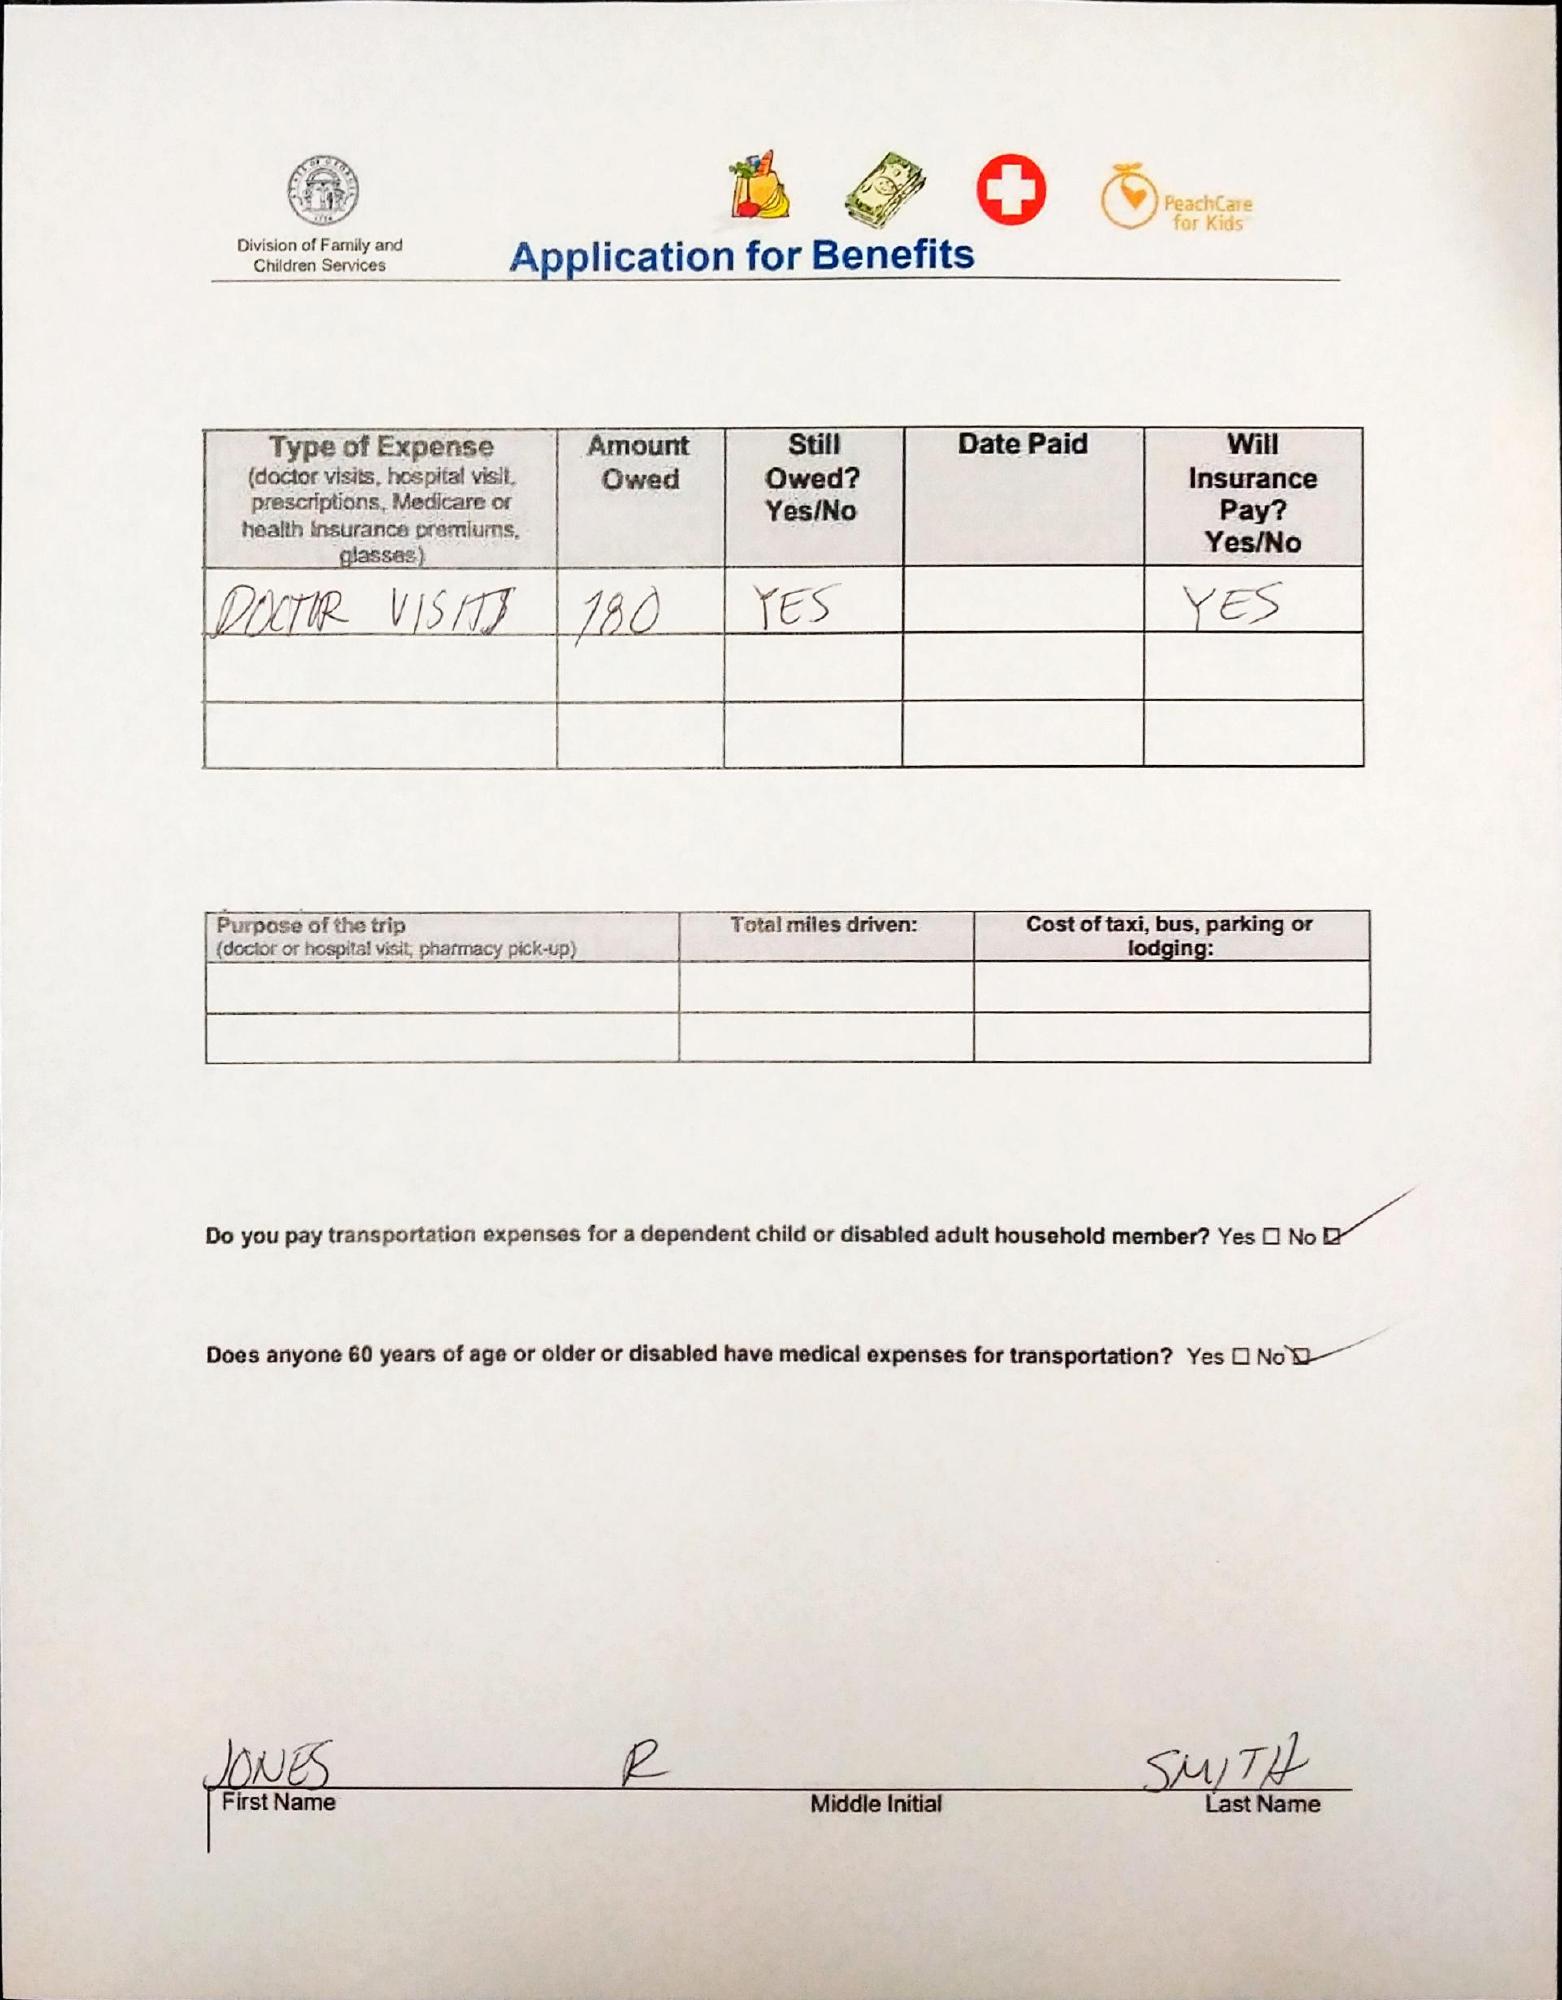 PeachCare
for Kids
Division of Family and
Children Services
Application for Benefits
Type of Expense
(doctor visits, hospital visit,
prescriptions, Medicare or
health insurance premiums,
glasses)
Amount
Owed
Still
Owed?
Yes/No
Date Paid
Will
Insurance
Pay?
Yes/No
DOCTOR VISITS 180 YES YES
Purpose of the trip
(doctor or hospital visit, pharmacy pick-up)
Total miles driven:
Cost of taxi, bus, parking or
lodging:
Do you pay transportation expenses for a dependent child or disabled adult household member? Yes ☐ No ☑
Does anyone 60 years of age or older or disabled have medical expenses for transportation? Yes ☐ No ☑
JONES R SMITH
First Name Middle Initial Last Name